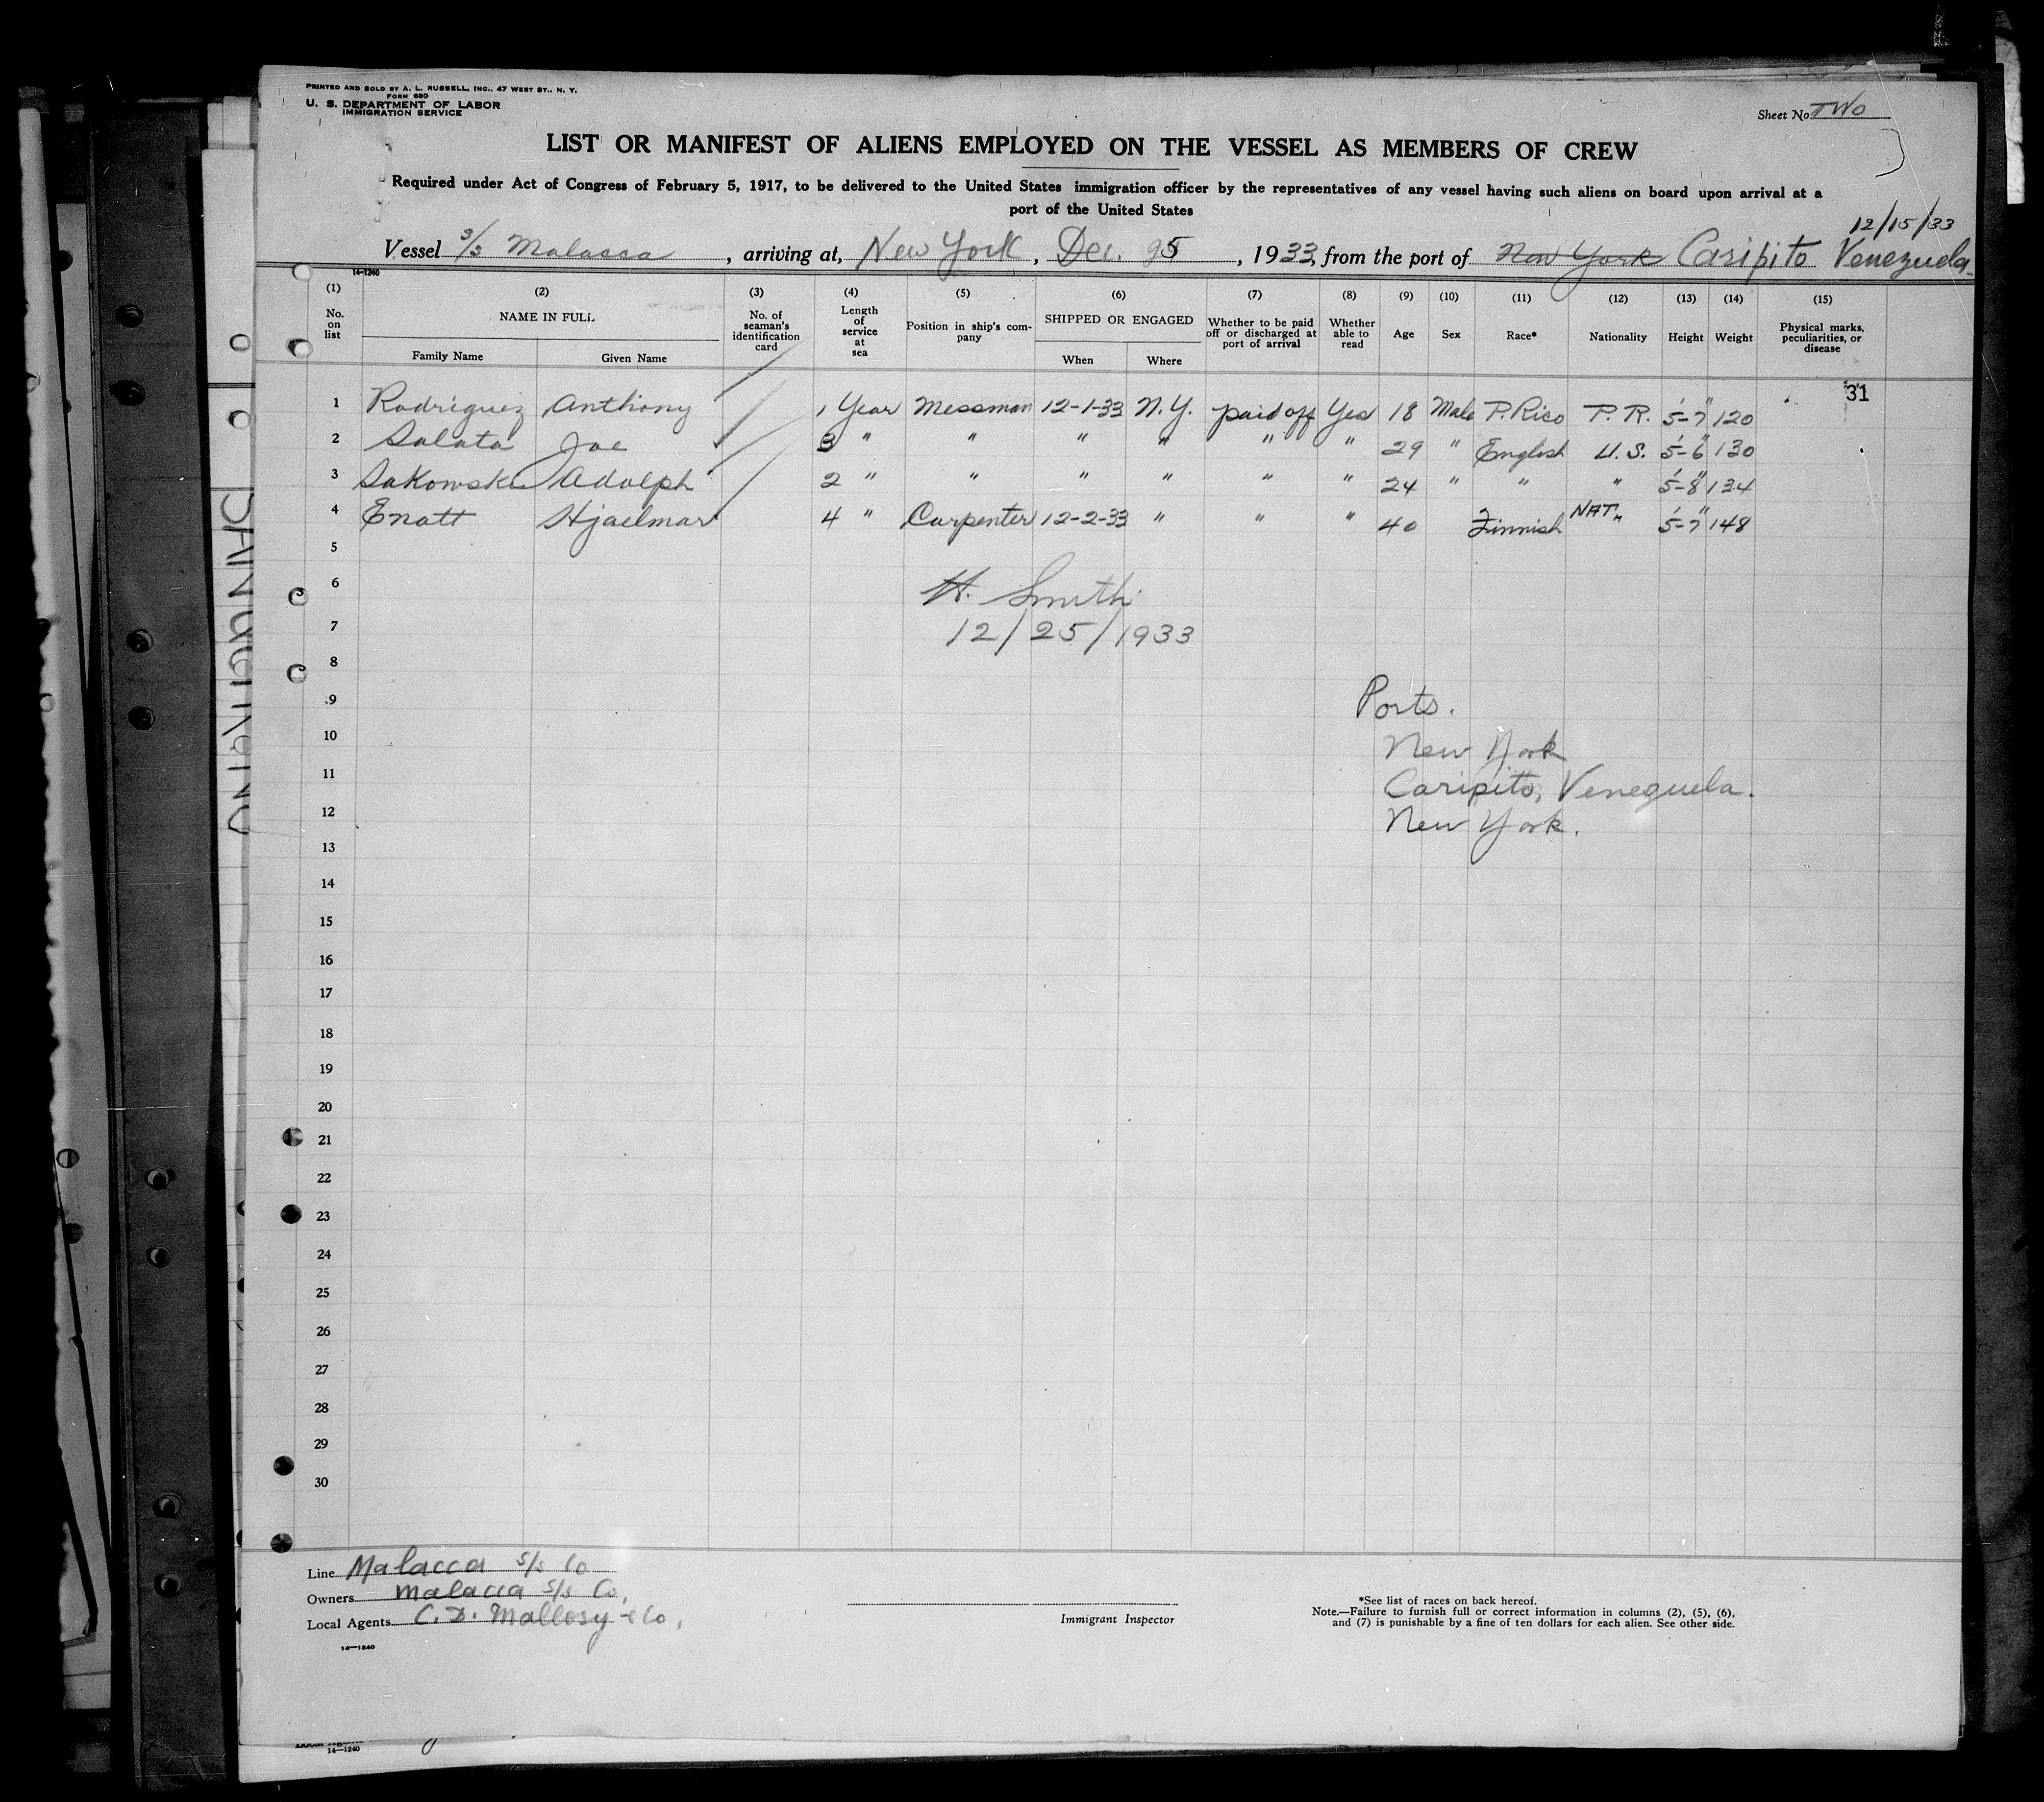 PRINTED AND SOLD BY A. L. RUSSELL, INC., 47 WEST ST., N. Y.
FORM 680
U. S. DEPARTMENT OF LABOR
IMMIGRATION SERVICE
Sheet No. TWO
LIST OR MANIFEST OF ALIENS EMPLOYED ON THE VESSEL AS MEMBERS OF CREW
Required under Act of Congress of February 5, 1917, to be delivered to the United States immigration officer by the representatives of any vessel having such aliens on board upon arrival at a
port of the United States
12/15/33
Vessel S/S Malacca, arriving at, New York, Dec. 25, 1933, from the port of New York Caripito Venezuela
14-1240
(1) (2) (3) (4) (5) (6) (7) (8) (9) (10) (11) (12) (13) (14) (15)
No. on list NAME IN FULL Family Name Given Name No. of seaman's identification card Length of service at sea Position in ship's company SHIPPED OR ENGAGED When Where Whether to be paid off or discharged at port of arrival Whether able to read Age Sex Race* Nationality Height Weight Physical marks, peculiarities, or disease
31
1 Rodriguez Anthony 1 Year Messman 12-1-33 N.Y. paid off Yes 18 Male P. Rico P. R. 5'-7" 120
2 Salata Joe 3 " " " " " " 29 " English U.S. 5'-6" 130
3 Sakowski Adolph 2 " " " " " " 24 " " " 5'-8" 134
4 Enatt Hjaelmar 4 " Carpenter 12-2-33 " " " 40 Finnish NAT. " 5'-7" 148
5
6 H. Smith
7 12/25/1933
8
9 Ports.
10 New York
11 Caripito, Venezuela.
12 New York.
13
14
15
16
17
18
19
20
21
22
23
24
25
26
27
28
29
30
Line Malacca S/S Co
Owners Malacca S/S Co.
Local Agents C. D. Mallory & Co.
14-1240
Immigrant Inspector
*See list of races on back hereof.
Note.—Failure to furnish full or correct information in columns (2), (5), (6),
and (7) is punishable by a fine of ten dollars for each alien. See other side.
14-1240